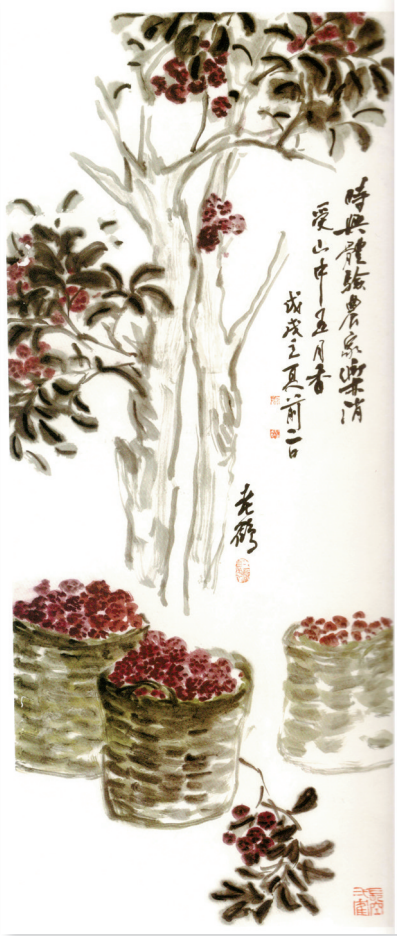 時興體驗農家樂消
受山中五月香
戊戌之夏前二日
老鶴